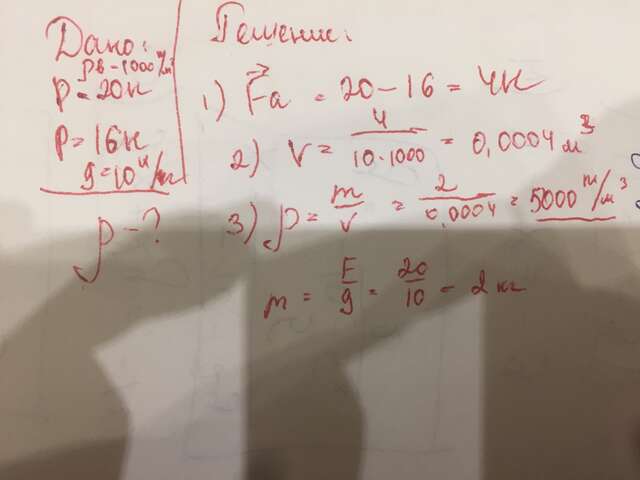 Дано:
ρв = 1000 кг/м³
P = 20н
P = 16н
g = 10 н/кг
ρ - ?
Решение:
1) Fa = 20 - 16 = 4н
2) V = 4 / 10·1000 = 0,0004 м³
3) ρ = m/V = 2 / 0,0004 = 5000 кг/м³
m = F/g = 20/10 = 2 кг